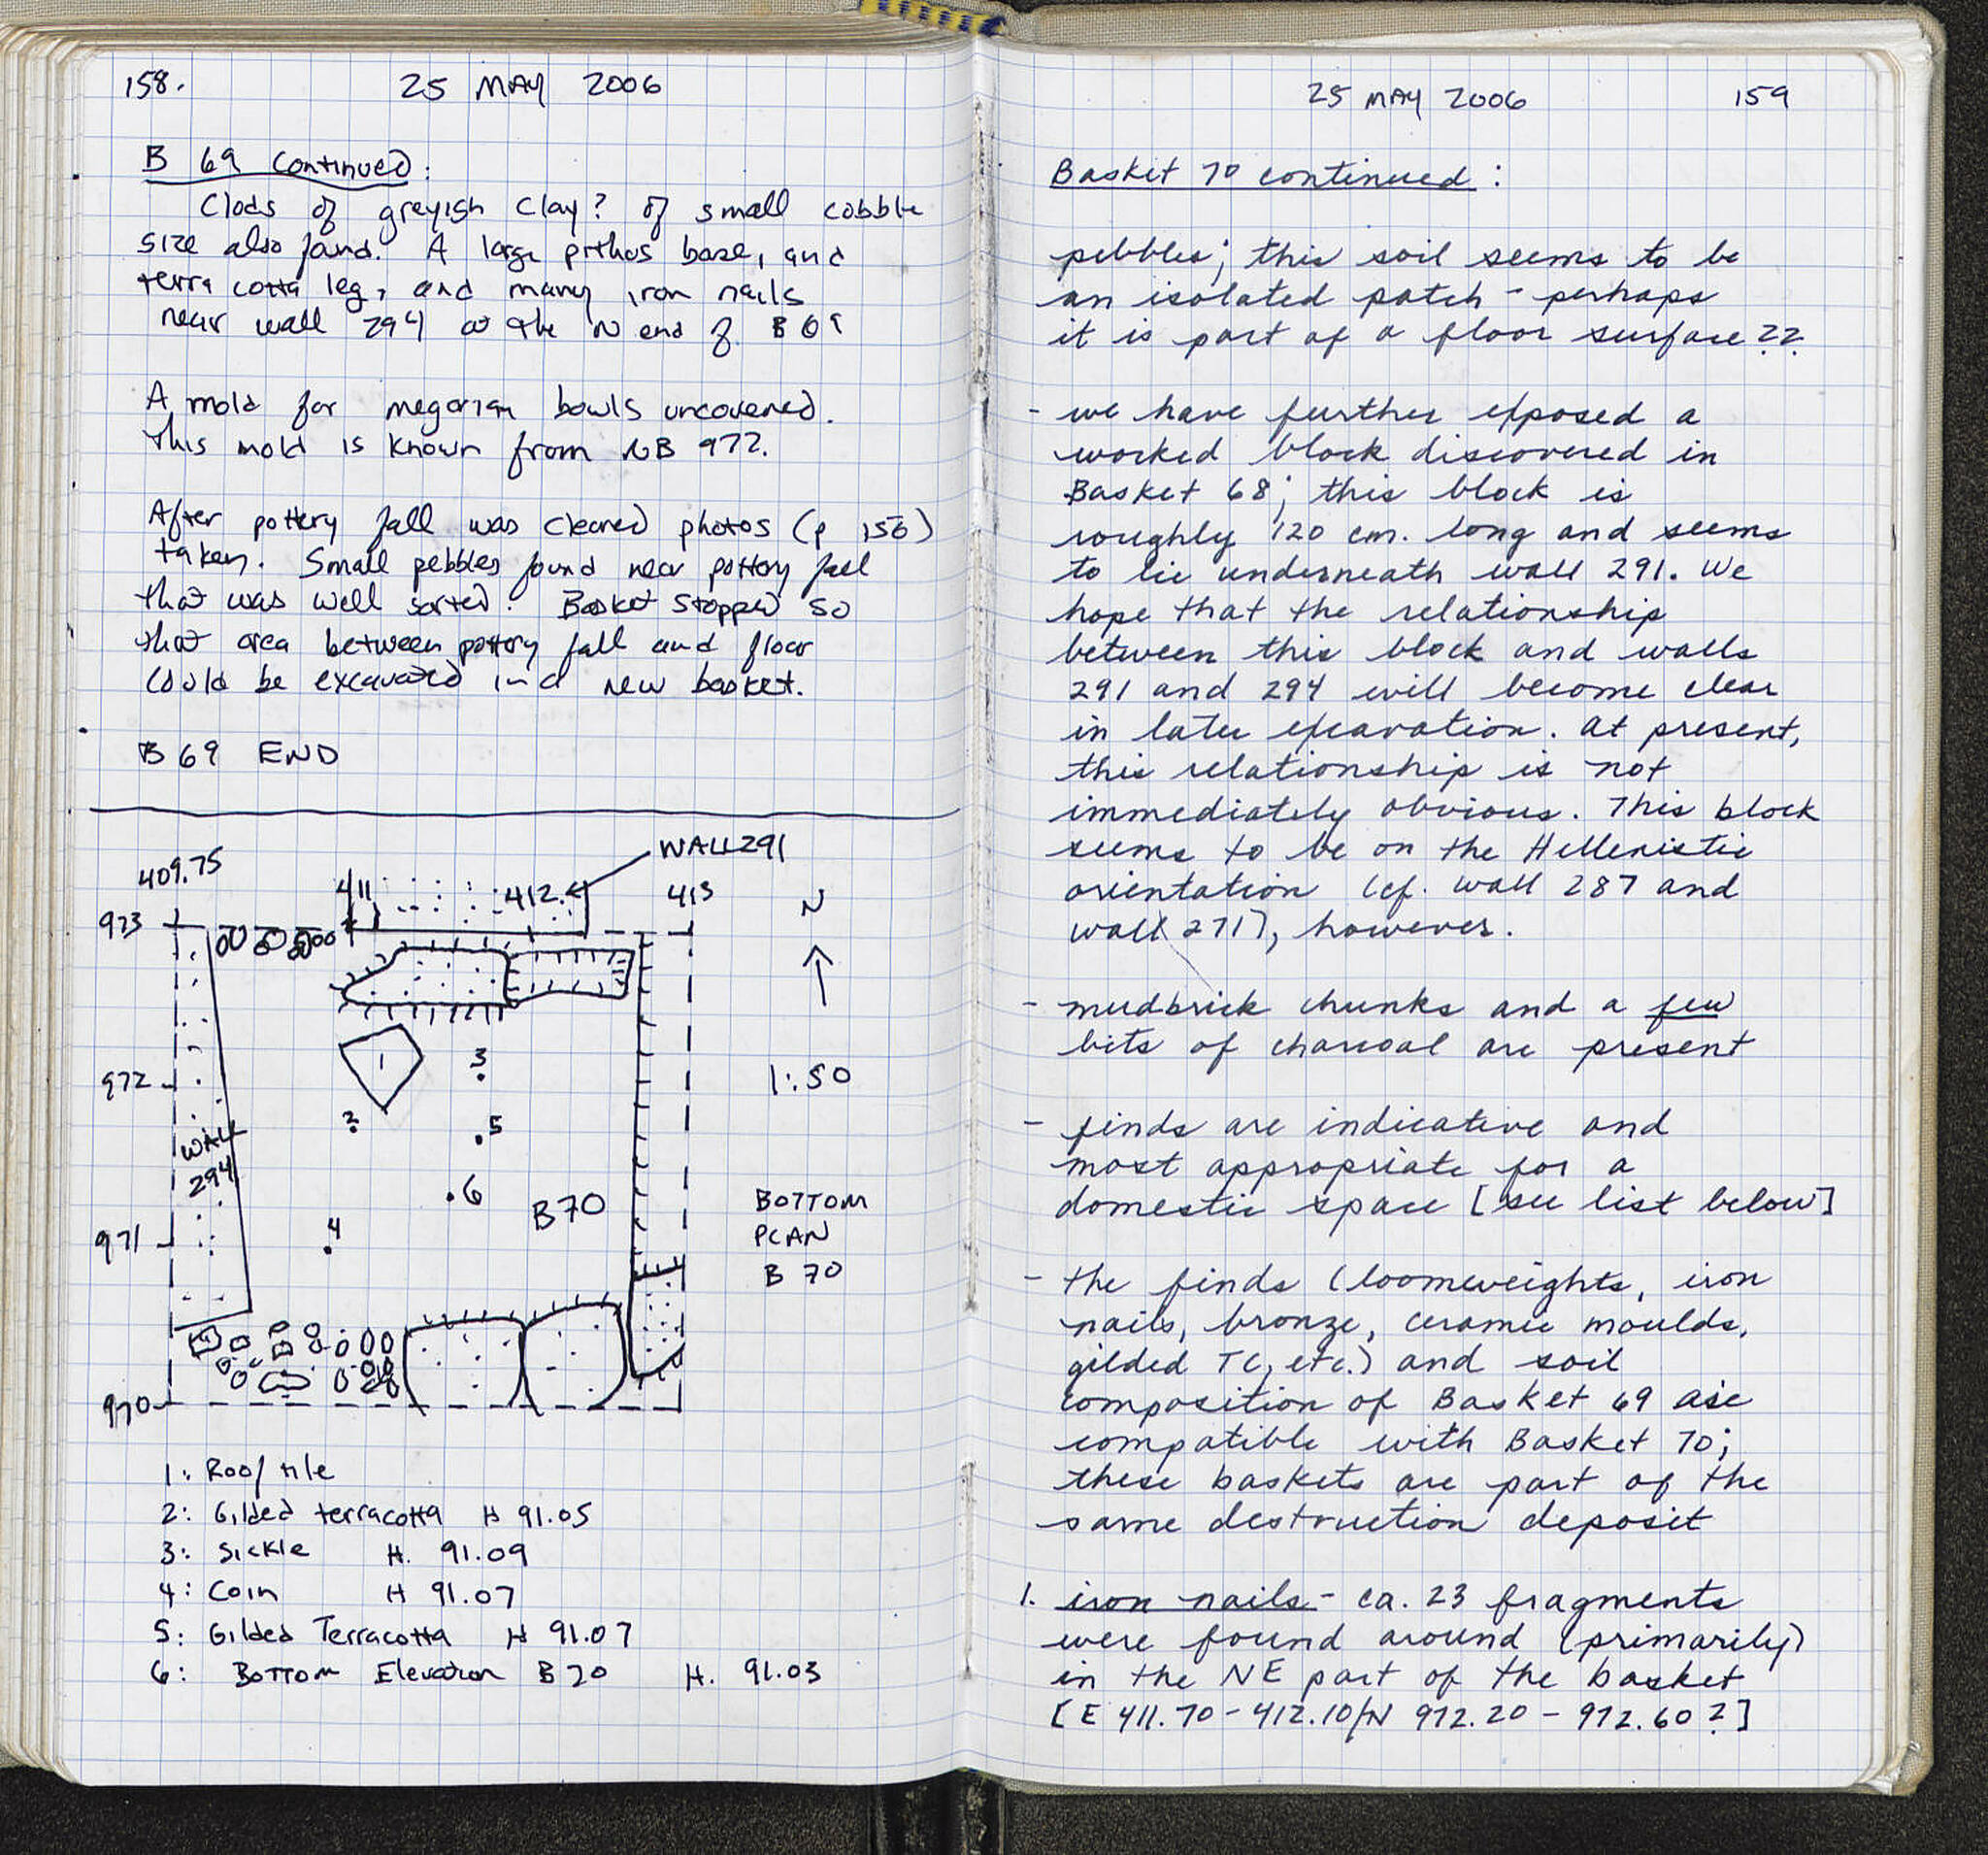 158.
25 MAY 2006
B 69 continued:
Clods of greyish clay? of small cobble
size also found. A large pithos base, and
terra cotta leg, and many iron nails
near wall 294 at the N end of B 69
A mold for megarian bowls uncovered.
This mold is known from NB 972.
After pottery fall was cleared photos (p 156)
taken. Small pebbles found near pottery fall
that was well sorted. Basket stopped so
that area between pottery fall and floor
could be excavated in a new basket.
B 69 END
WALL 291
409.75
411
412
413
923
N
1
3
972
1:50
2
5
WALL
294
6
B70
BOTTOM
PLAN
B 70
4
971
970
1: Roof tile
2: Gilded terracotta H 91.05
3: Sickle H. 91.09
4: Coin H 91.07
5: Gilded Terracotta H 91.07
6: Bottom Elevation B 70 H. 91.03
25 MAY 2006
159
Basket 70 continued:
pebbles; this soil seems to be
an isolated patch - perhaps
it is part of a floor surface??
- we have further exposed a
worked block discovered in
Basket 68; this block is
roughly 120 cm. long and seems
to lie underneath wall 291. We
hope that the relationship
between this block and walls
291 and 294 will become clear
in later excavation. At present,
this relationship is not
immediately obvious. This block
seems to be on the Hellenistic
orientation (cf. wall 287 and
wall 271), however.
- mudbrick chunks and a few
bits of charcoal are present
- finds are indicative and
most appropriate for a
domestic space [see list below]
- the finds (loomweights, iron
nails, bronze, ceramic moulds,
gilded TC, etc.) and soil
composition of Basket 69 are
compatible with Basket 70;
these baskets are part of the
same destruction deposit
1. iron nails - ca. 23 fragments
were found around (primarily)
in the NE part of the basket
[E 411.70 - 412.10/N 972.20 - 972.60?]